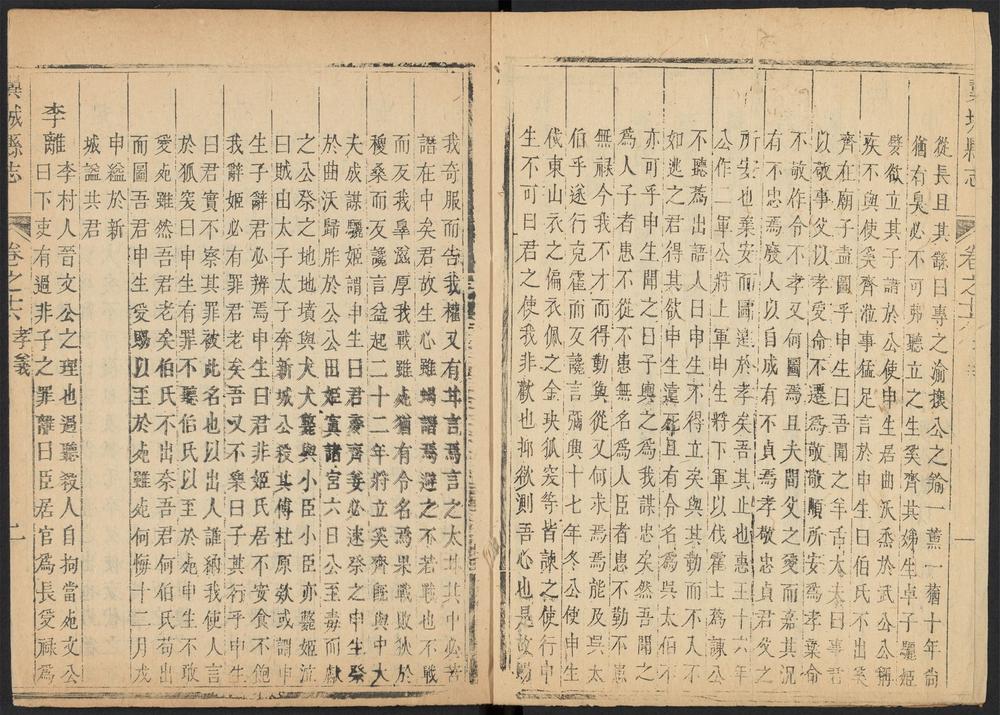 翼城縣志
卷之十六
一
從長且其繇曰專之渝攘公之羭一薰一蕕十年尚
猶有臭必不可弗聽立之生奚齊其娣生卓子驪姬
嬖欲立其子請於公使申生居曲沃烝於武公公稱
疾不與使奚齊涖事猛足言於申生曰伯氏不出奚
齊在廟子盍圖乎申生曰吾聞之羊舌大夫曰事君
以敬事父以孝受命不遷爲敬敬順所安爲孝棄命
不敬作令不孝又何圖焉且夫間父之愛而嘉其況
有不忠焉廢人以自成有不貞焉孝敬忠貞君父之
所安也棄安而圖遠於孝矣吾其止也惠王十六年
公作二軍公將上軍申生將下軍以伐霍士蔿諫公
不聽蔿出語人曰太子不得立矣與其勤而不入不
如逃之君得其欲申生遠死且有令名爲吳太伯不
亦可乎申生聞之曰子輿之爲我謀忠矣然吾聞之
爲人子者患不從不患無名爲人臣者患不勤不患
無祿今我不才而得勤與從又何求焉焉能及吳太
伯乎遂行克霍而反讒言彌興十七年冬公使申生
伐東山衣之偏衣佩之金玦狐突等皆諫之使行申
生不可曰君之使我非歡也抑欲測吾心也是故賜
我奇服而告我權又有甘言焉言之太甘其中必苦
譖在中矣君故生心雖蝎譖焉避之不若戰也不戰
而反我辠滋厚我戰雖死猶有令名焉果戰敗狄於
稷桑而反讒言益起二十二年將立奚齊旣與中大
夫成謀驪姬謂申生曰君夢齊姜必速祭之申生祭
於曲沃歸胙於公公田姬寘諸宮六日公至毒而獻
之公祭之地地墳與犬犬斃與小臣小臣亦斃姬泣
曰賊由太子太子奔新城公殺其傅杜原欵或謂申
生子辭君必辨焉申生曰君非姬氏居不安食不飽
我辭姬必有罪君老矣吾又不樂曰子其行乎申生
曰君實不察其罪被此名也以出人誰納我使人言
於狐突曰申生有罪不聽伯氏以至於死申生不敢
愛死雖然吾君老矣伯氏不出奈吾君何伯氏苟出
而圖吾君申生受賜以至於死雖死何悔十二月戊
申縊於新
城諡共君
李離李村人晉文公之理也過聽殺人自拘當死文公
曰下吏有過非子之罪離曰臣居官爲長受祿爲
翼城縣志
卷之十六 孝義
二